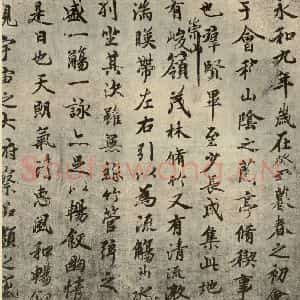 永和九年歲在癸丑暮春之初會
于會稽山陰之蘭亭脩稧事
也群賢畢至少長咸集此地
崇山
有峻領茂林脩竹又有清流激
湍暎帶左右引以為流觴曲水
列坐其次雖無絲竹管弦之
盛一觴一詠亦足以暢敘幽情
是日也天朗氣清惠風和暢仰
觀宇宙之大俯察品類之盛